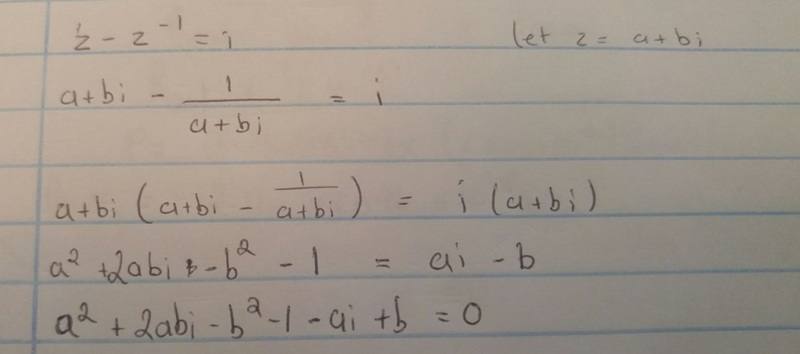 z - z⁻¹ = i let z = a+bi
a+bi - 1/(a+bi) = i
a+bi (a+bi - 1/(a+bi)) = i (a+bi)
a² +2abi - b² - 1 = ai - b
a² + 2abi - b² - 1 - ai + b = 0